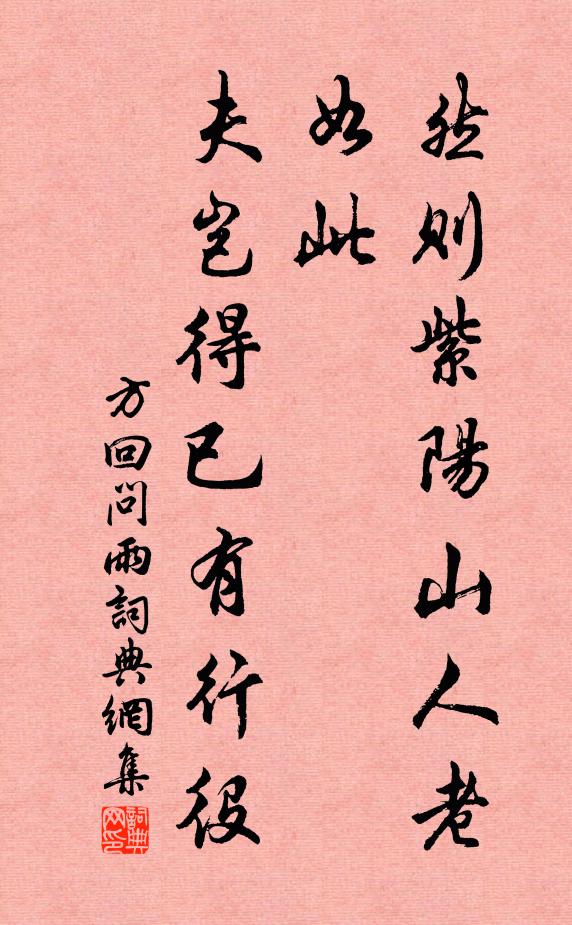 然則紫陽山人老
如此
夫豈得已有行役
方回問雨詞典網集
詞典
网印